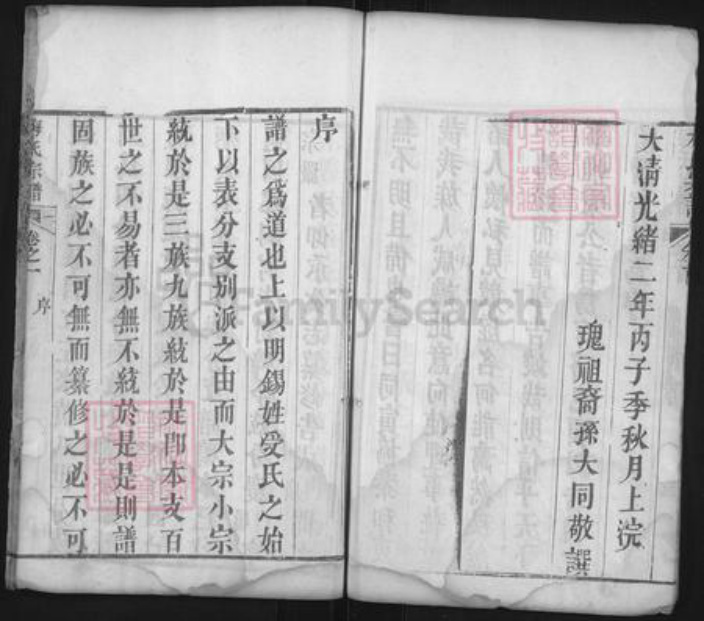 大清光緒二年丙子季秋月上浣
瑰祖裔孫大同敬譔
序
譜之爲道也上以明錫姓受氏之始
下以表分支别派之由而大宗小宗
統於是三族九族統於是卽本支百
世之不易者亦無不統於是是則譜
固族之必不可無而纂修之必不可
氏宗譜
卷之一
序
FamilySearch